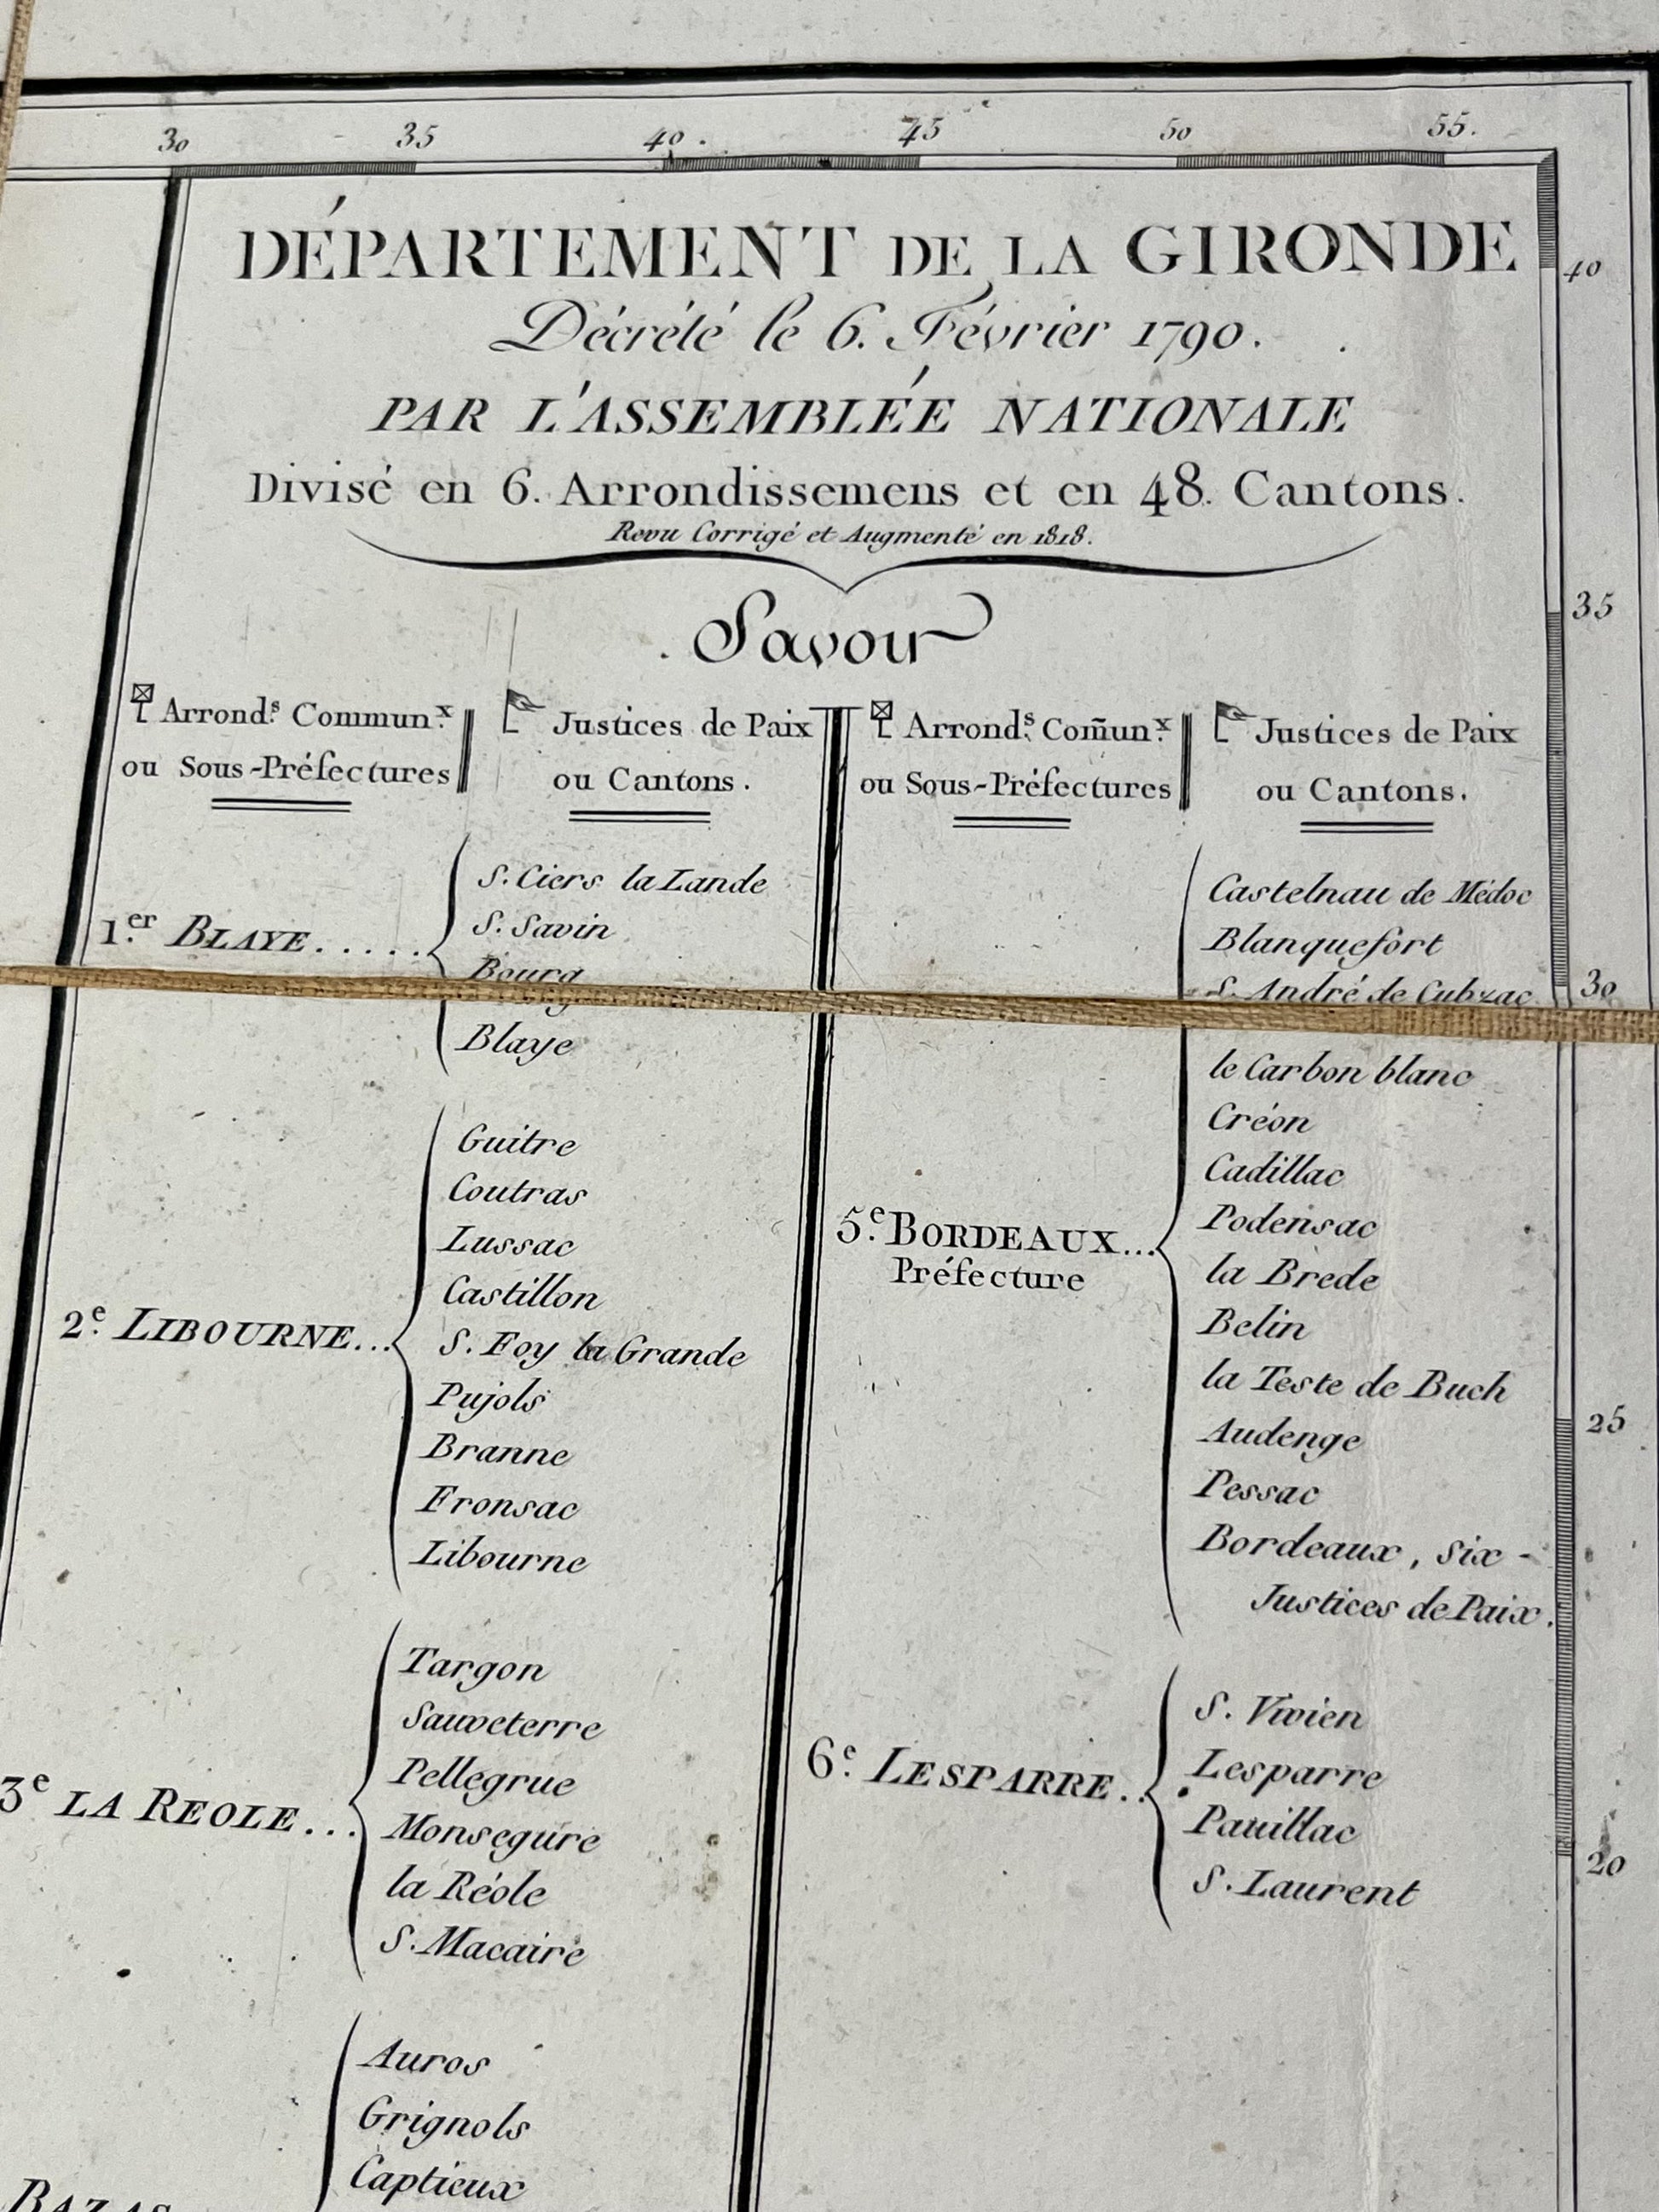 30 35 40. 45 50 55.
DÉPARTEMENT DE LA GIRONDE
Décrété le 6. Février 1790.
PAR L'ASSEMBLÉE NATIONALE
Divisé en 6. Arrondissemens et en 48. Cantons.
Revu Corrigé et Augmenté en 1818.
Savoir
Arrond.s Commun.x
ou Sous-Préfectures
Justices de Paix
ou Cantons.
1.er BLAYE.....
S. Ciers la Lande
S. Savin
Bourg
Blaye
2.e LIBOURNE...
Guitre
Coutras
Lussac
Castillon
S. Foy la Grande
Pujols
Branne
Fronsac
Libourne
3e LA REOLE...
Targon
Sauveterre
Pellegrue
Monsegure
la Réole
S. Macaire
BAZAS
Auros
Grignols
Captieux
Arrond.s Com̃un.x
ou Sous-Préfectures
Justices de Paix
ou Cantons.
5.e BORDEAUX...
Préfecture
Castelnau de Médoc
Blanquefort
S. André de Cubzac
le Carbon blanc
Créon
Cadillac
Podensac
la Brede
Belin
la Teste de Buch
Audenge
Pessac
Bordeaux, six -
Justices de Paix.
6.e LESPARRE..
S. Vivien
Lesparre
Pauillac
S. Laurent
40
35
30
25
20